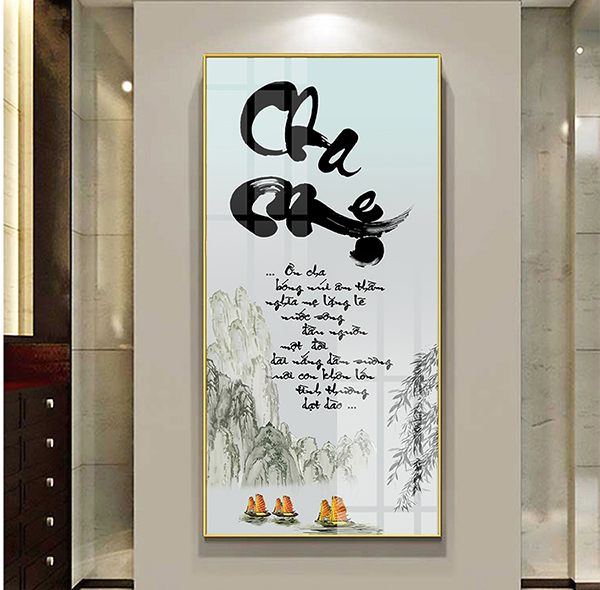 Cha
Mẹ
... Ơn cha
bóng núi âm thầm
nghĩa mẹ lặng lẽ
nước sông
đầu nguồn
một đời
dãi nắng dầm sương
nuôi con khôn lớn
tình thương
dạt dào ...